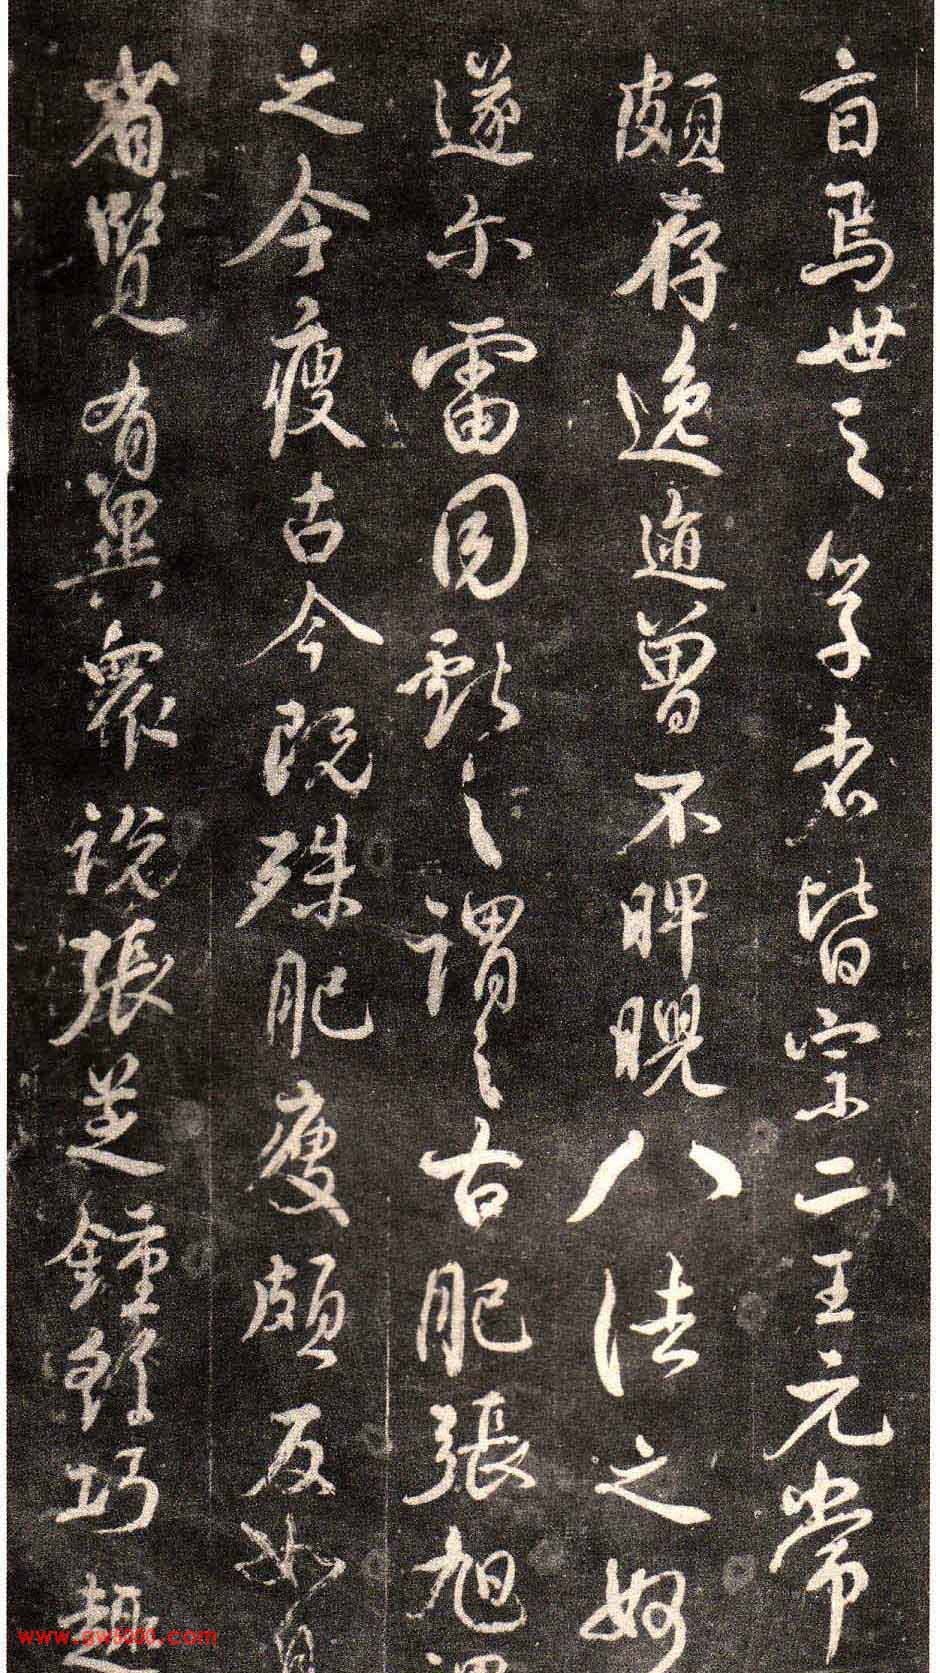 盲焉世之学者皆宗二王元常
頗存逸迹曾不睥睨八法之妙
遂尔雷同献之謂之古肥張旭謂
之今瘦古今既殊肥瘦頗反如自
省覽有異衆説張芝鍾繇巧趣
www.aw8000.com